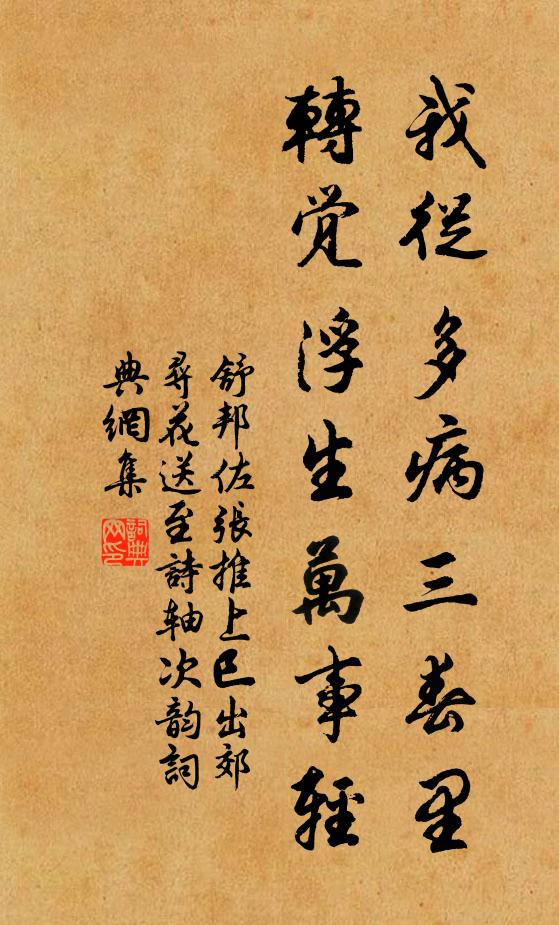 我從多病三春里
轉覺浮生萬事輕
舒邦佐張推上巳出郊
尋花送至詩轴次韵詞
典網集
詞典
网印